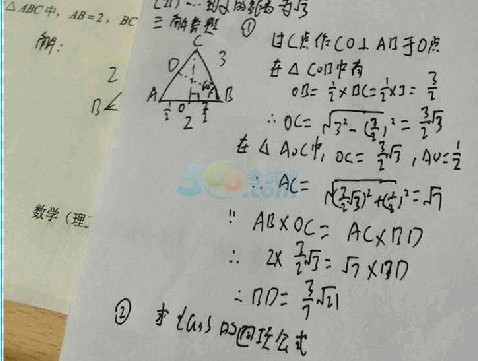 △ABC中，AB=2，BC
解：
2
B
数学（理工
三 解答题 ①
C
D
3
A
O
B
1/2
3/2
2
过C点作CO⊥AB于O点
在△COB中有
OB=1/2×BC=1/2×3=3/2
∴OC=√(3²-(3/2)²)=3/2√3
在△AOC中，OC=3/2√3，AO=1/2
∴AC=√((3/2√3)²+(1/2)²)=√7
∵AB×OC=AC×BD
∴2×3/2√3=√7×BD
∴BD=3/7√21
② 求{an}的通项公式